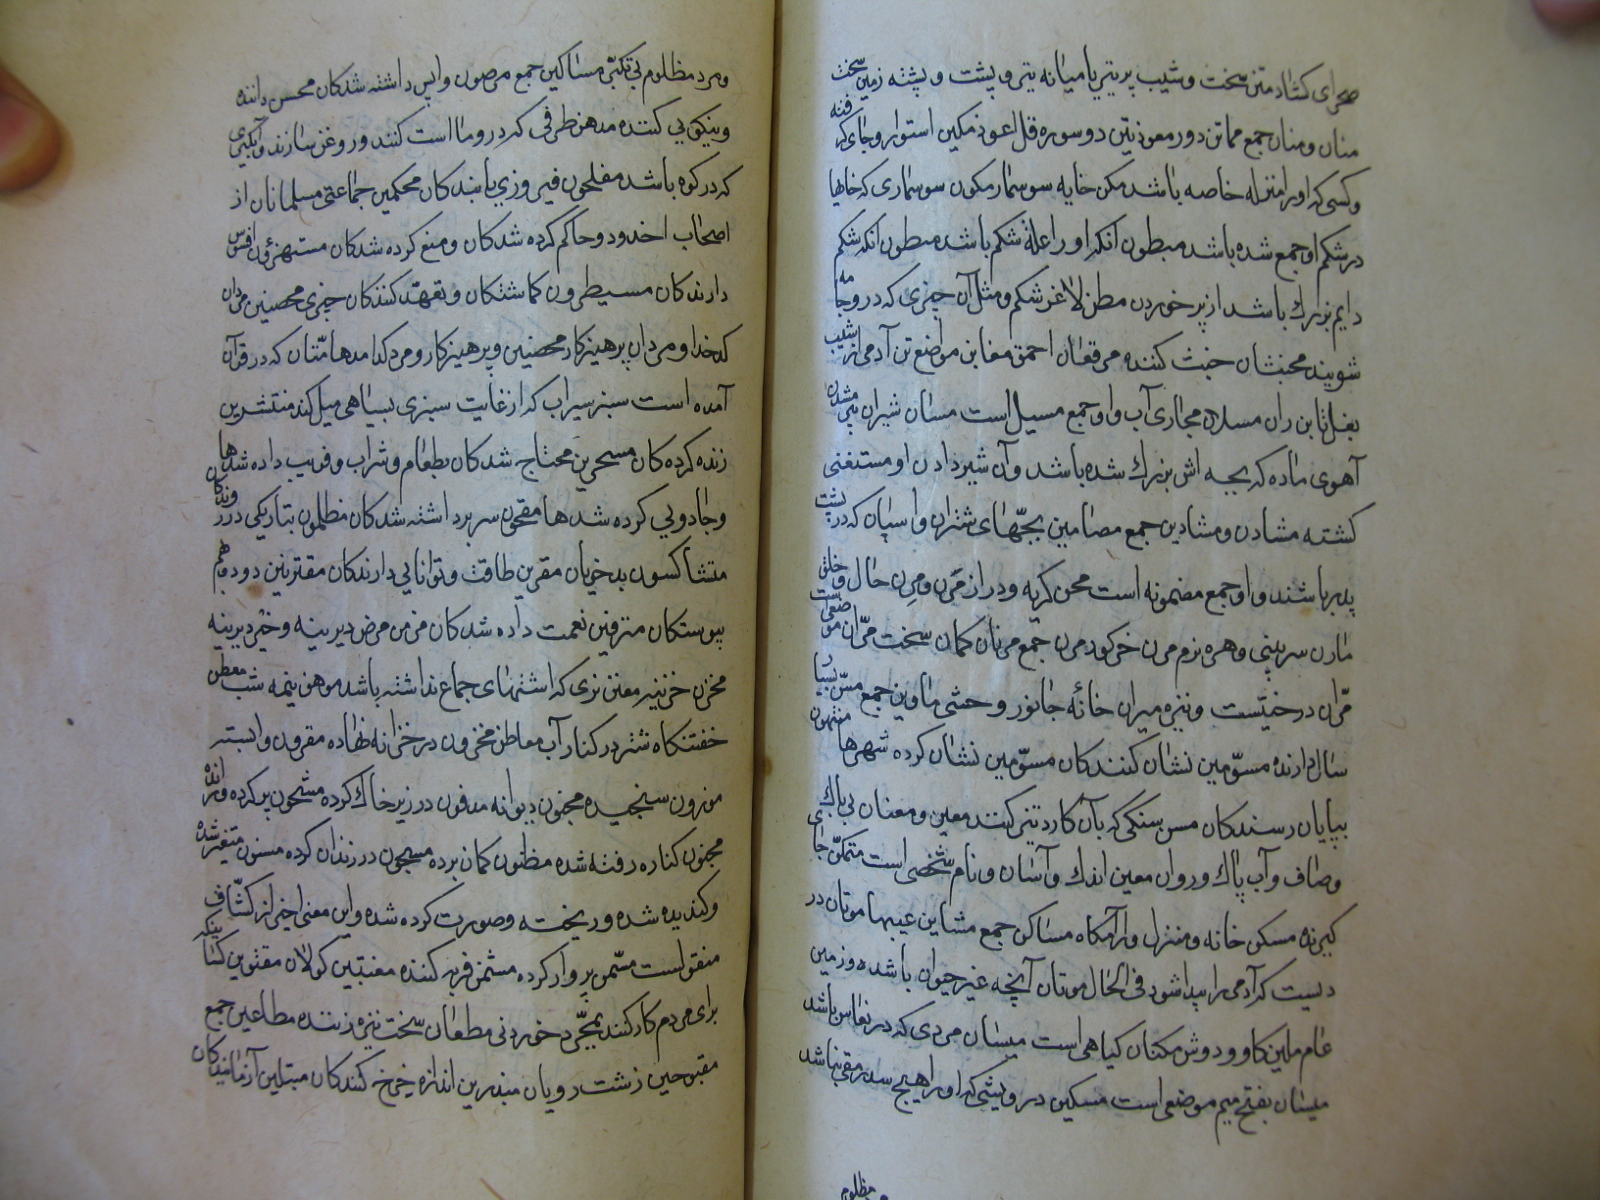 صحرای کشاد متن سخت و شیب پر یتیر یا میانه یتر و پشت و پشته زمین سخت
متان و منان جمع مماتن دور معوذتین دو سوره قل اعوذ مکین استوار و جای
و کسی که او را منزله خاصه باشد مکن خایه سوسمار مکون سوسماری که خایها
در شکم او جمع شده باشد مبطون انکه او را علة شکم باشد مبطون انکه شکم
دایم بزرك باشد از پر خوردن مطن لاغر شکم و مثل آن چیزی که در و جامه
شویند محنثان حنث کننده مرقعان احمق مغابن مواضع تن آدمی از شیب
بغل تا بن ران مسلان مجاری آب و او جمع مسیل است مستان شیران
آهوی ماده که بچه اش بزرك شده باشد و آن شیر دادن او مستغنی
کشته مشادن و مشادین جمع مضامین بچهای شتران و اسپان که در پشت
پدر باشند و او جمع مضمونه است محن کریه و دراز مرن و مرن حال و خلق
مارن سر بینی و هره نرم مرن خوی کود مرن جمع مرنان کمان سخت
مران درختیست و نیزه میران خانه جانور وحشی ماوین جمع
سال دارنده مسومین نشان کنندکان مسومین نشان کرده شهرها منتهون
بپایان رسندکان مسن سنکی که بآن کارد تیز کنند معین و معنان
و صاف و آب پاك و روان معین اندك و آسان و نام شخصی است متمکن جای
کیرنده مسکن خانه و منزل و آرامکاه مساکن جمع مشاین عیبها موتان در
دیست که آدمی را پیدا شود فی الحال موتان آنچه غیر حیوان باشد و زمین
عام ملین کاو و دوش مکتان کیاهی است میسان مردی که در نعاس باشد
میسان بفتح میم موضعی است مسکین درویشی که او را هیچ سد رمقی نباشد
مظلوم
و مرد مظلوم بی تکبر مساکین جمع مرصون واپس داشته شدکان محسن داننده
و نیکویی کننده مدهن ظرفی که در و ما است کنند و روغن سازند و آبکیری
که در کوه باشد مفلحون فیروزی یابندکان محکمین جماعتی مسلمانان از
اصحاب اخدود و حاکم کرده شدکان و منع کرده شدکان مستهزئون افسوس
دارندکان مسیطرون کماشتکان و تعهد کنندکان چیزی محصنین مردان
کدخدا و مردان پرهیزکار محصنین و پرهیزکار و مرد کدا مدهامتان که در قرآن
آمده است سبز سیراب که از غایت سبزی بسیاهی میل کند منتشرین
زنده کرده کان مسحرین محتاج شدکان بطعام و شراب و فریب داده شدها
و جادویی کرده شدها مقمحون سر برداشته شدکان مظلمون بتاریکی در روندکان
متشاکسون بدخویان مقرین طاقت و توانایی دارندکان مقترنین دو دو بهم
پیوستکان مترفین نعمت داده شدکان مزمن مرض دیرینه و خمر دیرینه
مخزن خزینه معنن نری که اشتهای جماع نداشته باشد موهن نیمه شب معطن
خفتنکاه شتر در کنار آب معاطن مخزون در خزانه نهاده مقرون وابسته
موزون سنجیده مجنون دیوانه مدفون در زیر خاك کرده مشحون پر کرده و رانده
مجنون کناره رفته شده مظنون کمان برده مسجون در زندان کرده مسنون متغیر شده
و کندیده شده و ریخته و صورت کرده شده و این معنی اخیر از کشاف
منقولست مسمن پروار کرده مشمن فربه کننده مغبتین کولان مقتوین
برای مردم کار کنند بمجرد خوردنی مطعان سخت نیزه زننده مطاعین جمع
مقبوحین زشت رویان مبذرین اندازه خرج کنندکان مبتلین آزمایندکان